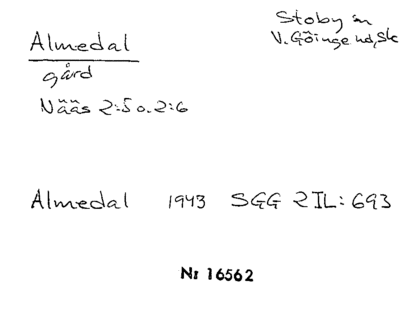 Almedal
gård
Nääs 2:5 o. 2:6
Stoby sn
V. Göinge hd, Sk
Almedal 1943 SGG 2 IL: 693
Nr 16562